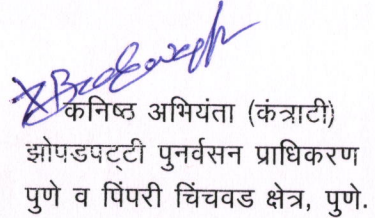 कनिष्ठ अभियंता (कंत्राटी)
झोपडपट्टी पुनर्वसन प्राधिकरण
पुणे व पिंपरी चिंचवड क्षेत्र, पुणे.